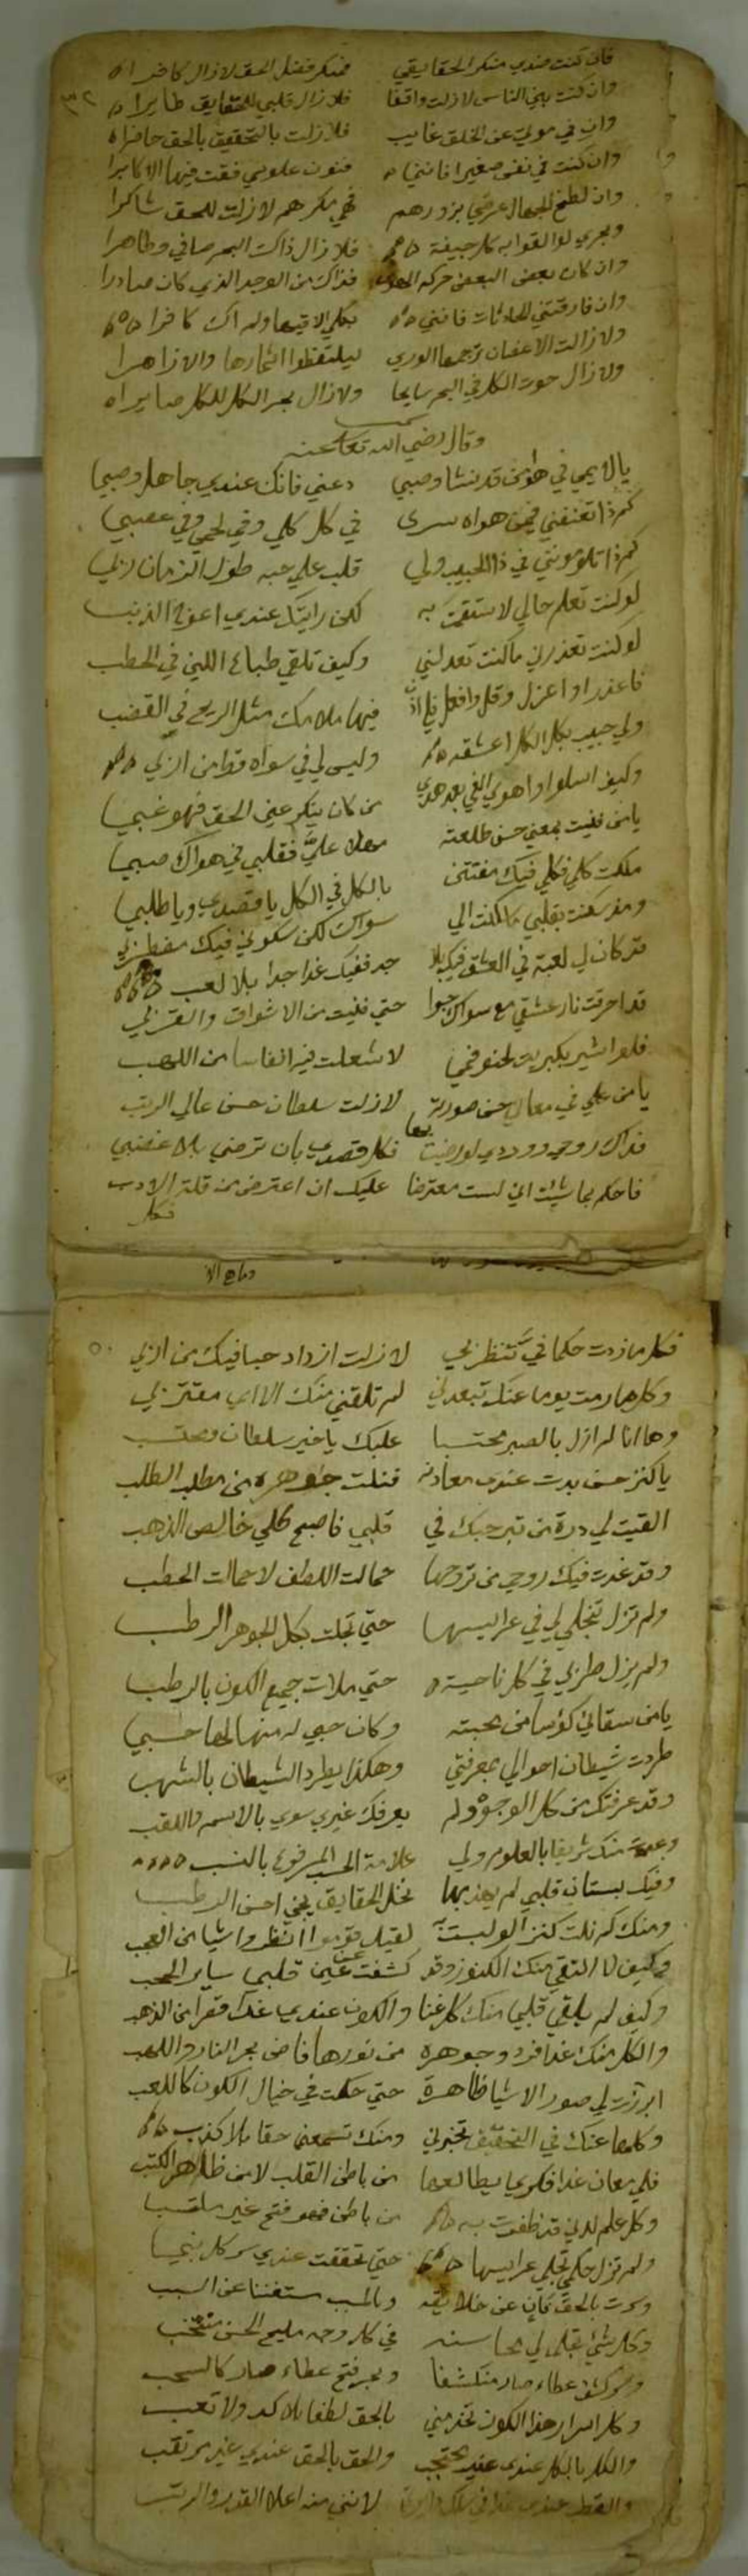 فان كنت عندي منكر الحقايقي فمنكر فضل الحق لازال كافرا
٣٢
وان كنت بين الناس لازلت واقفا فلا زال قلبي للحقايق طايرا
وان في عن الخلق غايب فلا زلت بالتحقيق بالحق حاضرا
وان كنت في نفسي صغيرا فانني فنون علومي فقت فيها الاكابرا
وان لطخ الجهال عرضي بزورهم ففي مكرهم لازلت للحق شاكرا
وبحري لو القوا به كل جيفة فلا زال ذاك البحر صافي وطاهرا
وان كان بعض البعض حركه فذاك من الوجد الذي كان صادرا
وان فارقتني الحادثات فانني بكلي الاقيها ولم اك كافرا
ولا زالت الاغصان ترجمها الوري ليلتقطوا اثمارها والازاهرا
ولا زال حوت الكل في البحر سابحا ولا زال بحر الكل للكل صابرا
وقال رضي الله تعالى عنه
يا لايمي في هوى من قد نشا وصبي دعني فانك عندي جاهل وصبي
كم ذا تعنفني فيمن هواه سرى في كل كلي وفي لحمي وفي عصبي
كم ذا تلومونني في ذا الحبيب ولي قلب علي حبه طول الزمان ربي
لو كنت تعلم حالي لاستقمت به لكن رايتك عندي اعوج الذنب
لو كنت تعذرني ما كنت تعدلني وكيف تلقي طباع اللين في الحطب
فاعذر او اعزل وقل وافعل فلي اذن فيها ملامك مثل الريح في القضب
ولي حبيب بكل الكل اعشقه وليس لي في سواه قط من ارب
وكيف اسلوا واهوي الغي بعد هدي من كان ينكر عين الحق فهو غبي
يا من فنيت بمعني حسن طلعته مهلا عليّ فقلبي في هواك صبي
ملكت كلي فكلي فيك مفتتن بالكل في الكل يا قصدي ويا طلبي
وقد سكنت بقلبي ما الي سواك لكن سكوني فيك مضطرب
قد كان لي لعبة في العشق فيك بلا جد ففيك غدا جدا بلا لعب
قد احرقت نار عشقي مع سواك جوا حتي فنيت من الاشواق والقرب
فلو اشير بكبريت لنحو فمي لاشعلت فيه انفاسا من اللهب
يا من علي في معالي حسن صورته لازلت سلطان حسن عالي الرتب
فداك روحي ووردي لو رضيت بها فكل قصدي بان ترضي بلا غضب
فاحكم بما شئت اني لست معترضا عليك ان اعترض من قلة الادب
فكل
فكل ما زدت حكما فيّ تنظر بي لازلت ازداد حبا فيك من ارب
وكلما رمت يوما عنك تبعدني لم تلقني منك الا اي مقترب
وها انا لم ازل بالصبر محتسبا عليك يا خير سلطان ومحتسب
يا كنز حسن بدت عندي معادنه فنلت جوهره من مطلب الطلب
القيت لي درة من تبر حبك في قلبي فاصبح كلي خالص الذهب
وقد غدت فيك روحي من تروحها حمالت اللطف لا حمالت الحطب
ولم تزل تنجلي لي في عرايسها حتي تجلت بكل الجوهر الرطب
ولم يزل طربي في كل ناحية حتي ملات جميع الكون بالرطب
يا من سقاني كؤسا من محبته وكان حبي له منها لها حسبي
طردت شيطان احوالي بمعرفتي وهكذا يطرد الشيطان بالشهب
وقد عرفتك من كل الوجوه ولم يعرفك غيري سوي بالاسم واللقب
منك شريفا بالعلوم ولي علامة الحسب المرفوع بالنسب
وفيك بستان قلبي لم يهذبها نخل الحقايق يجني احسن الرطب
ومنك كم نلت كنزا لو لبسته لقيل قوموا انظروا شيا من العجب
وكيف لا التقي منك الكنوز وقد كشفت عن عين قلبي ساير الحجب
وكيف لم يلقي قلبي منك كل غنا والكون عندي غدا قفرا من الذهب
والكل منك غدا فرد وجوهره من نورها فاض بحر النار واللهب
ابرزت لي صور الاشيا ظاهرة حتي حكت في خيال الكون كاللعب
وكلها عنك في التحقيق تخبرني ومنك تسمعني حقا بلا كذب
فلي معان غدا فكري يطالعها من باطن القلب لا من ظاهر الكتب
وكل علم لدني قد ظفرت به من باطن فهو فتح غير مكتسب
ولم تزل حكمي تجلي عرايسها حتي تحققت عندي سر كل نبي
وسرت بالحق فان عن خلايقه وبالمسبب مستغننا عن السبب
وكل شيء تجلي لي محاسنه في كل وجه مليح الحسن منتخب
وبحر فتح عطاء صار كالسحب
وكل اسرار هذا الكون تخدمني بالحق لطفا بلا كد ولا تعب
والكل بالكل عندي غير محتجب والحق بالحق عندي غير مرتقب
والقطب عندي لانني منه اعلا القدر والرتب